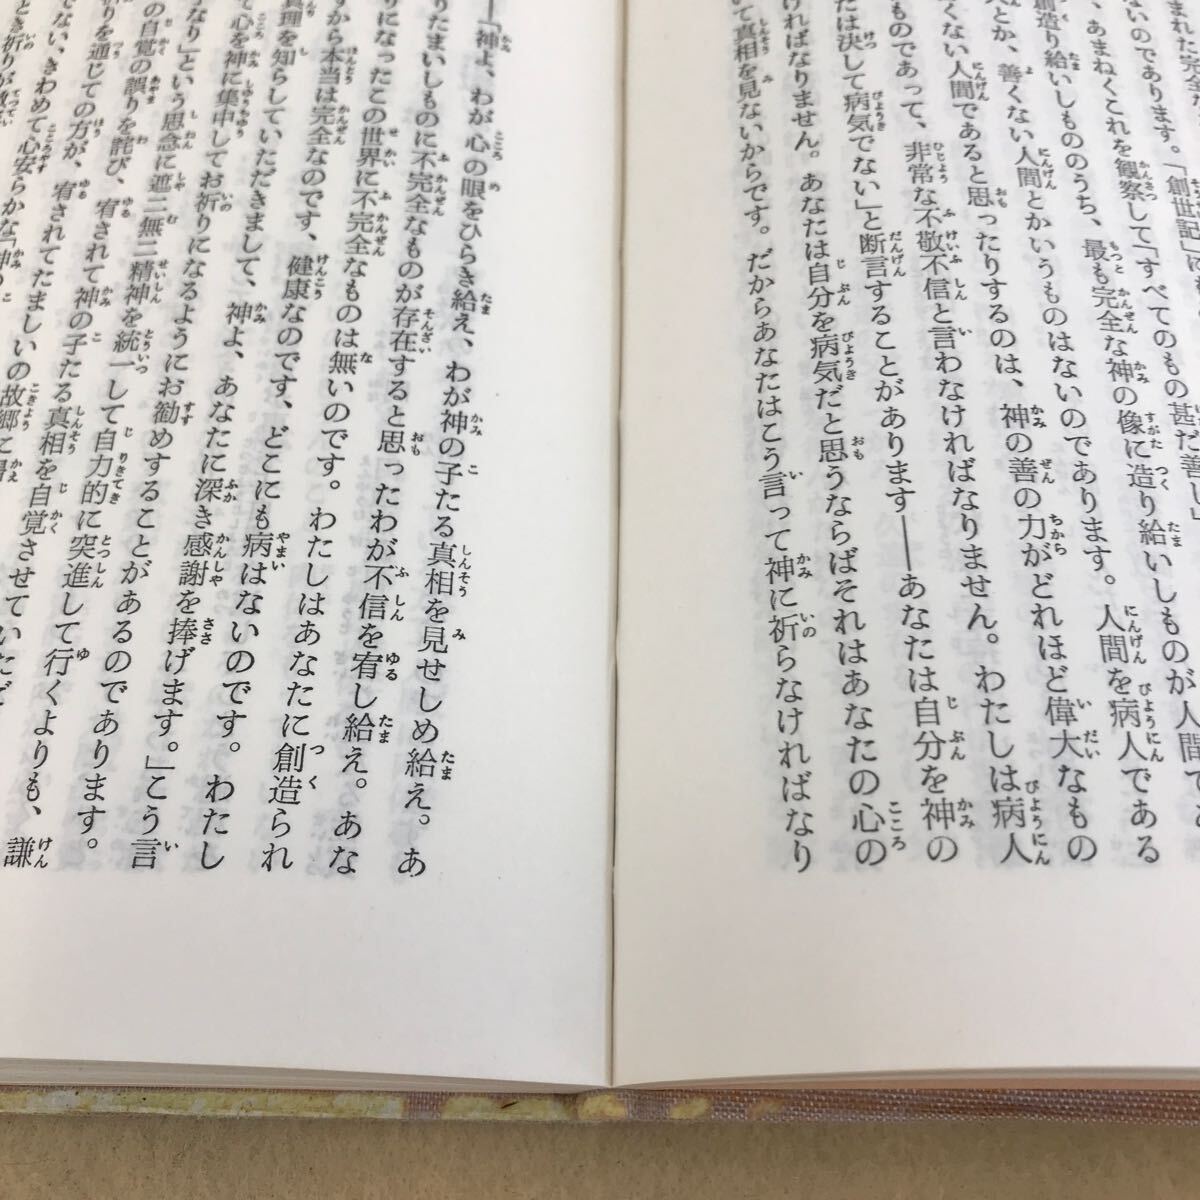 まれた完全な
ないのであります。「創世記」に
、あまねくこれを観察して「すべてのもの甚だ善し」
創造り給いしもののうち、最も完全な神の像に造り給いしものが人間で
人とか、善くない人間とかいうものはないのであります。人間を病人である
くない人間であると思ったりするのは、神の善の力がどれほど偉大なもの
ものであって、非常な不敬不信と言わなければなりません。わたしは病人
たは決して病気でない」と断言することがあります――あなたは自分を神の
ければなりません。あなたは自分を病気だと思うならばそれはあなたの心の
いて真相を見ないからです。だからあなたはこう言って神に祈らなければなり
――「神よ、わが心の眼をひらき給え、わが神の子たる真相を見せしめ給え。あ
りたまいしものに不完全なものが存在すると思ったわが不信を宥し給え。あな
りになったこの世界に不完全なものは無いのです。わたしはあなたに創造られ
すから本当は完全なのです、健康なのです、どこにも病はないのです。わたし
真理を知らしていただきまして、神よ、あなたに深き感謝を捧げます。」こう言
て心を神に集中してお祈りになるようにお勧めすることがあるのであります。
なり」という思念に遮二無二精神を統一して自力的に突進して行くよりも、謙
の自覚の誤りを詫び、宥されて神の子たる真相を自覚させていただ
祈りを通じての方が、宥されてたましいの故郷に帰
でない、きわめて心安らかな「神の
とき祈りが徹